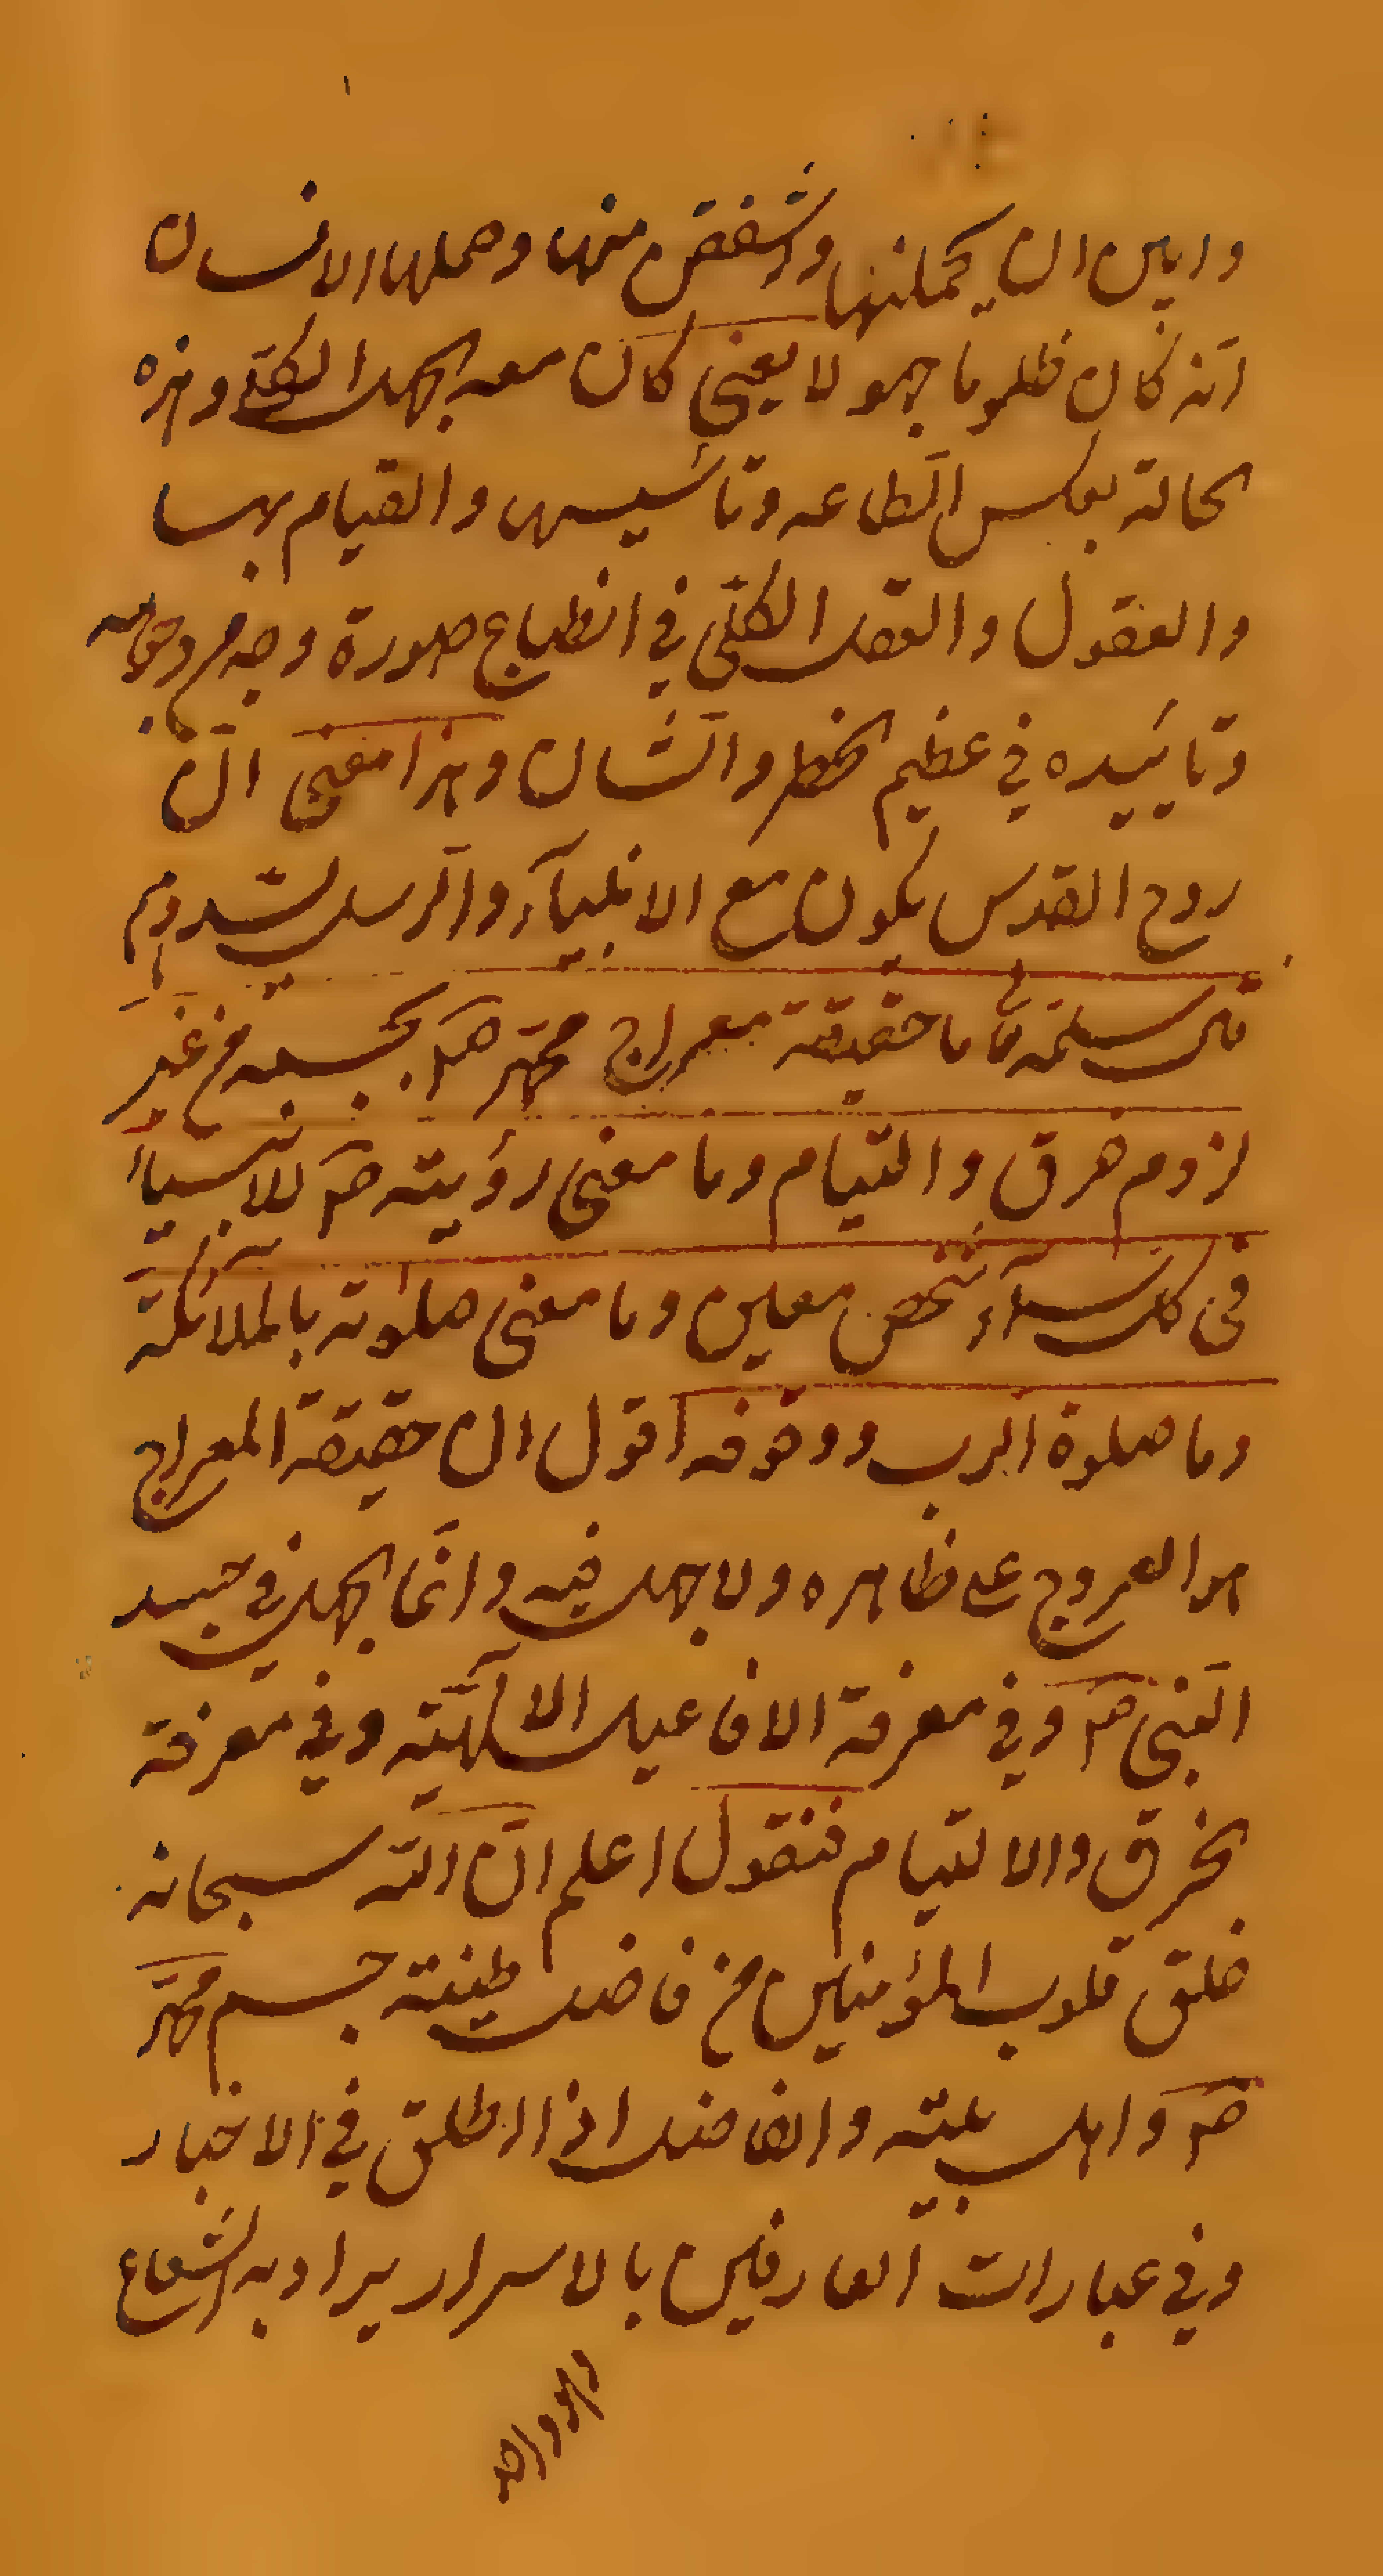 وابين ان يحملنها واشفقن منها وحملها الانسان
انه كان ظلوما جهولا يعنى كان معه الجهل الكلى وهذه
الحالة بعكس الطاعه وتأسيسها والقيام بها
والعقول والعقل الكلى في انطباع صورة وجههم وجوابه
وتأييده في عظيم الخطر والشان وهذا معنى انّ
روح القدس يكون مع الانبيآء والرسل يسددهم
قال سلمه الله ما حقيقة معراج محمّد صم بجسمه من غير
لزوم خرق والتيام وما معنى رؤيته صم للانبيآء
فى كل سمآء شخص معين وما معنى صلوته بالملآئكة
وما صلوة الرب ووقوفه اقول ان حقيقة المعراج
هو العروج على ظاهره ولا جهل فيه وانّما الجهل في جسد
النبى صم وفي معرفة الافاعيل الالٓهيّه وفي معرفة
الخرق والالتيام فنقول اعلم انّ الله سبحانه
خلق قلوب المؤمنين من فاضل طينة جسم محمّد
صم واهل بيته والفاضل اذا اطلق في الاخبار
وفي عبارات العارفين بالاسرار يراد به الشعاع